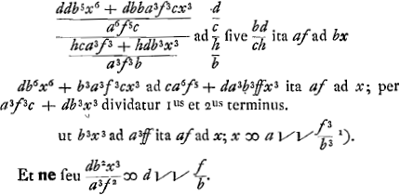 ddb⁵x⁶ + dbba³f³cx³ / a⁶f⁵c / hca³f³ + hdb³x³ / a³f³b ad d / c / h / b ſive bd / ch ita af ad bx
db⁶x⁶ + b³a³f³cx³ ad ca⁶f⁵ + da³b³ffx³ ita af ad x; per
a³f³c + db³x³ dividatur 1ᵘˢ et 2ᵘˢ terminus.
ut b³x³ ad a³ff ita af ad x; x ∞ a √√ f³ / b³ ¹).
Et ne ſeu db²x³ / a³f² ∞ d √√ f / b.